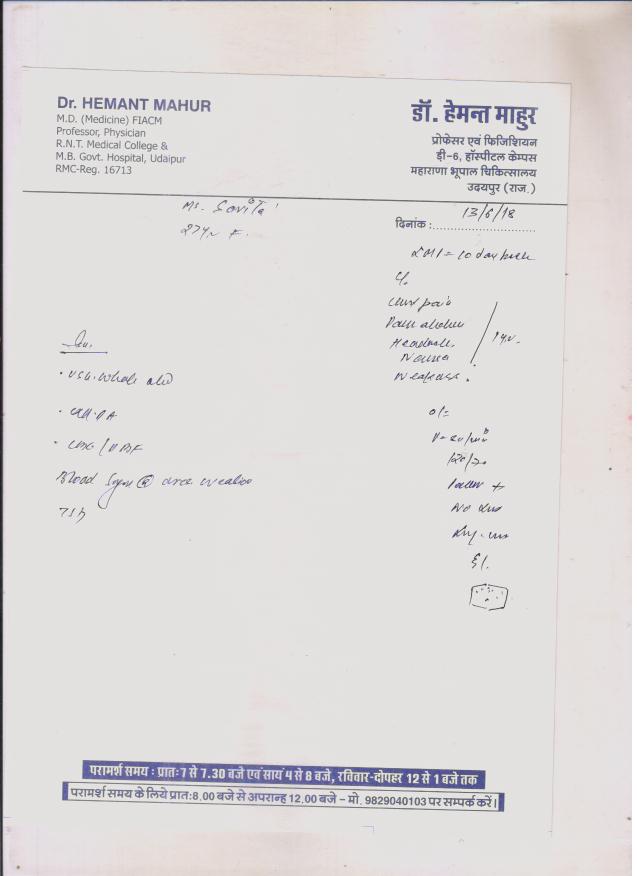 Dr. HEMANT MAHUR
M.D. (Medicine) FIACM
Professor, Physician
R.N.T. Medical College &
M.B. Govt. Hospital, Udaipur
RMC-Reg. 16713
डॉ. हेमन्त माहुर
प्रोफेसर एवं फिजिशियन
डी-6, हॉस्पीटल केम्पस
महाराणा भूपाल चिकित्सालय
उदयपुर (राज.)
Ms. Savita
27yr F.
दिनांक : 13/6/18
LMP = 10 day back
C/o
pain
Pain abdomen
Headache
Nausea
Weakness.
1 yr.
Inv.
• USG. Whole abd
• CBC
Blood Sugar urea creatine
TSH
O/E
120/70
Pallor +
No
S/E.
परामर्श समय : प्रातः 7 से 7.30 बजे एवं सायं 4 से 8 बजे, रविवार-दोपहर 12 से 1 बजे तक
परामर्श समय के लिये प्रातः 8.00 बजे से अपरान्ह 12.00 बजे – मो. 9829040103 पर सम्पर्क करें।